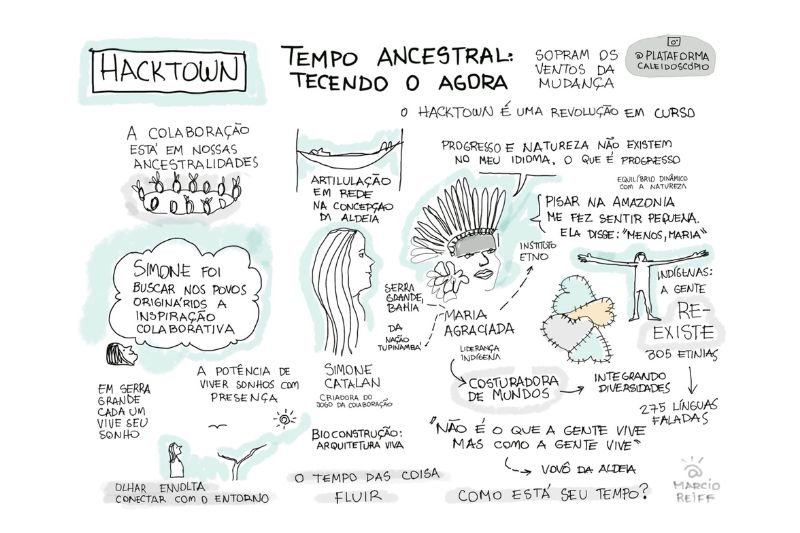 HACKTOWN
TEMPO ANCESTRAL:
TECENDO O AGORA
SOPRAM OS
VENTOS DA
MUDANÇA
@PLATAFORMA
CALEIDOSCÓPIO
O HACKTOWN É UMA REVOLUÇÃO EM CURSO
A COLABORAÇÃO
ESTÁ EM NOSSAS
ANCESTRALIDADES
ARTILULAÇÃO
EM REDE
NA CONCEPÇÃO
DA ALDEIA
PROGRESSO E NATUREZA NÃO EXISTEM
NO MEU IDIOMA. O QUE É PROGRESSO
EQUILÍBRIO DINÂMICO
COM A NATUREZA
PISAR NA AMAZONIA
ME FEZ SENTIR PEQUENA.
ELA DISSE: "MENOS, MARIA"
INSTITUTO
ETNO
SIMONE FOI
BUSCAR NOS POVOS
ORIGINÁRIOS A
INSPIRAÇÃO
COLABORATIVA
SERRA
GRANDE,
BAHIA
DA
NAÇÃO
TUPINAMBÁ
MARIA
AGRACIADA
LIDERANÇA
INDÍGENA
INDÍGENAS:
A GENTE
RE-
EXISTE
305 ETINIAS
275 LÍNGUAS
FALADAS
EM SERRA
GRANDE
CADA UM
VIVE SEU
SONHO
A POTÊNCIA DE
VIVER SONHOS COM
PRESENÇA
SIMONE
CATALAN
CRIADORA DO
JOGO DA COLABORAÇÃO
COSTURADORA
DE MUNDOS
INTEGRANDO
DIVERSIDADES
BIOCONSTRUÇÃO:
ARQUITETURA VIVA
"NÃO É O QUE A GENTE VIVE
MAS COMO A GENTE VIVE"
VOVÓ DA ALDEIA
OLHAR ENVOLTA
CONECTAR COM O ENTORNO
O TEMPO DAS COISA
FLUIR
COMO ESTÁ SEU TEMPO?
MARCIO
REIFF